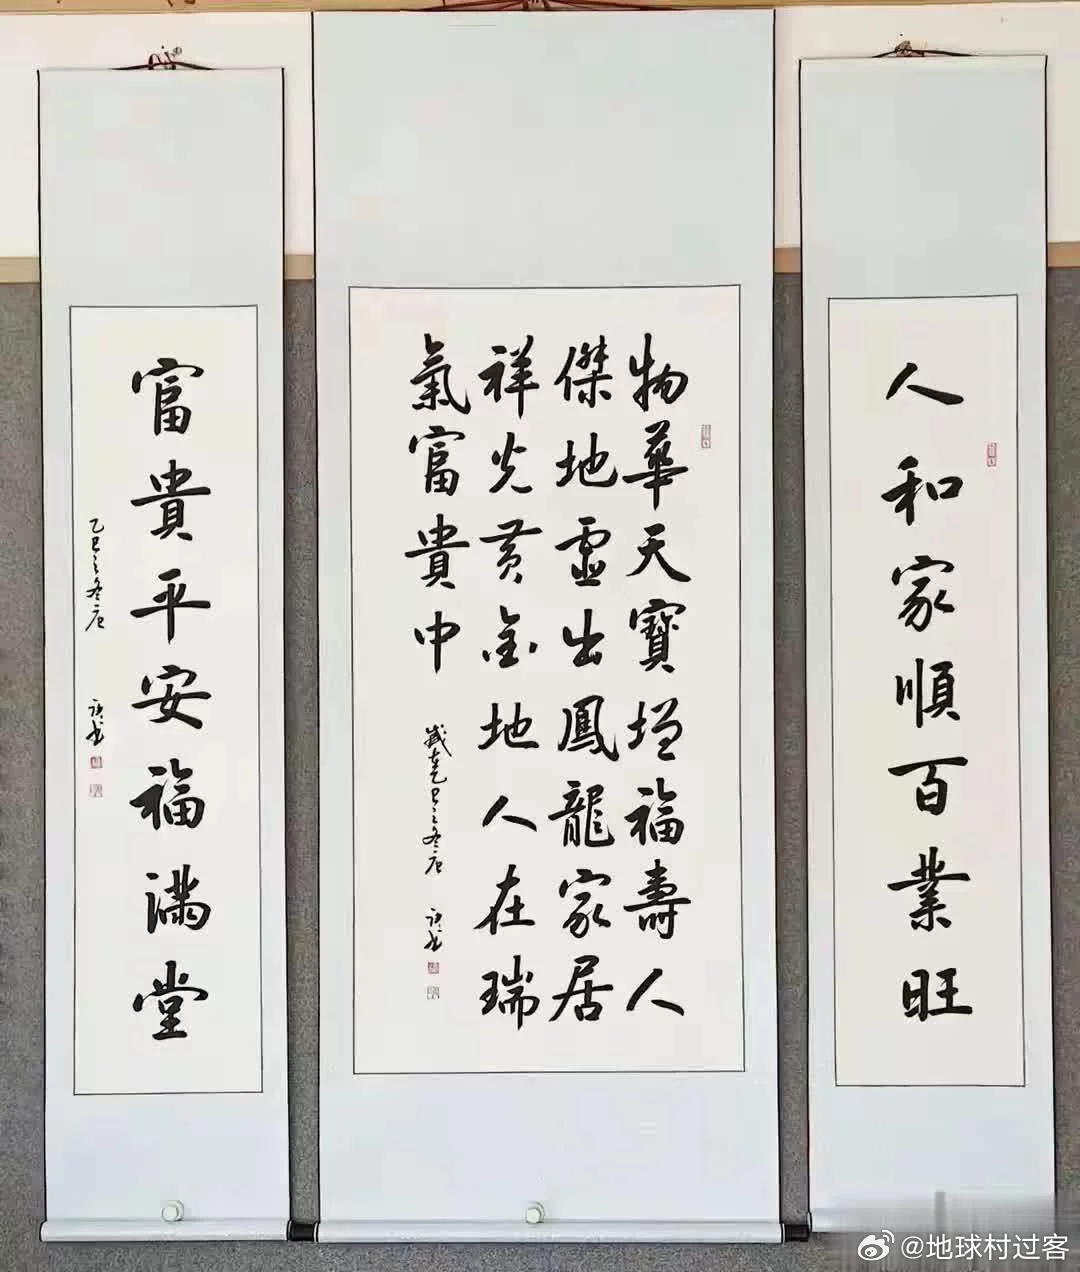 人和家順百業旺
物華天寶增福壽人
傑地霊出鳳龍家居
祥光黄金地人在瑞
氣富貴中
歲在乙巳之冬
富貴平安福滿堂
乙巳之冬
@地球村过客